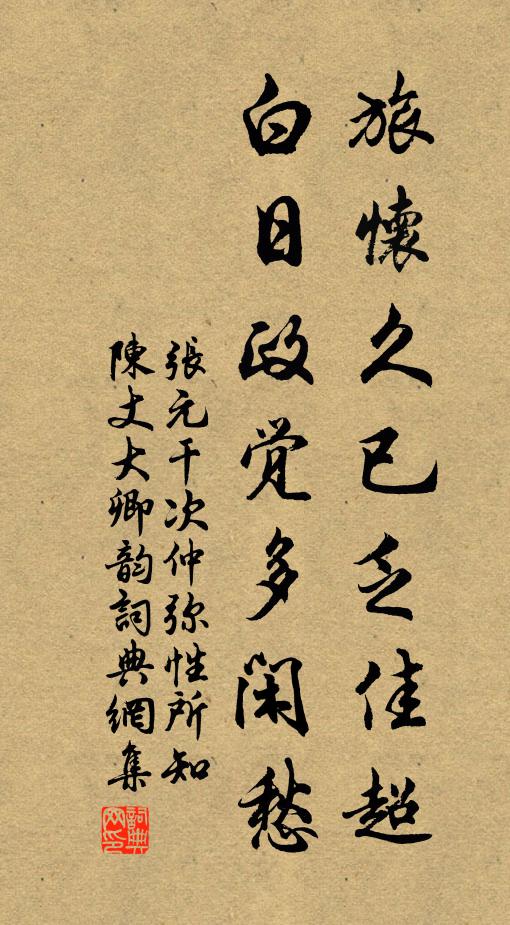 旅懷久已乏佳超
白日政觉多閑愁
張元干次仲弥性所知
陳丈大卿韵詞典網集
詞典网印